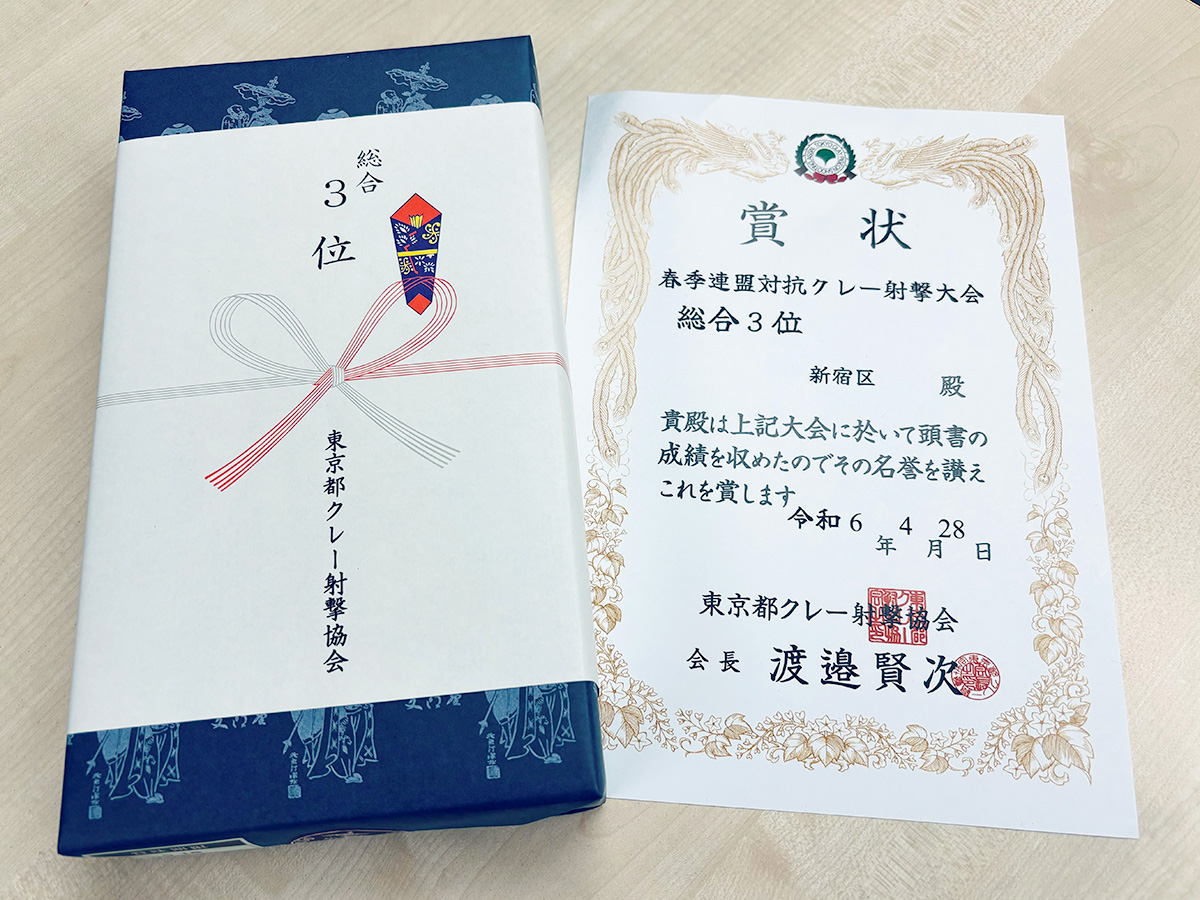 総合
3位
東京都クレー射撃協会
賞状
春季連盟対抗クレー射撃大会
総合3位
新宿区 殿
貴殿は上記大会に於いて頭書の
成績を収めたのでその名誉を讃え
これを賞します
令和6年4月28日
東京都クレー射撃協会
会長 渡邉賢次